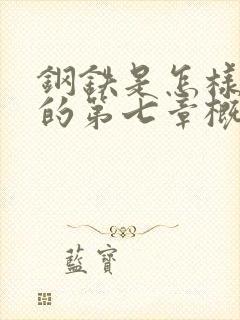 鋼鉄是怎樣
的第七章概
藍寶